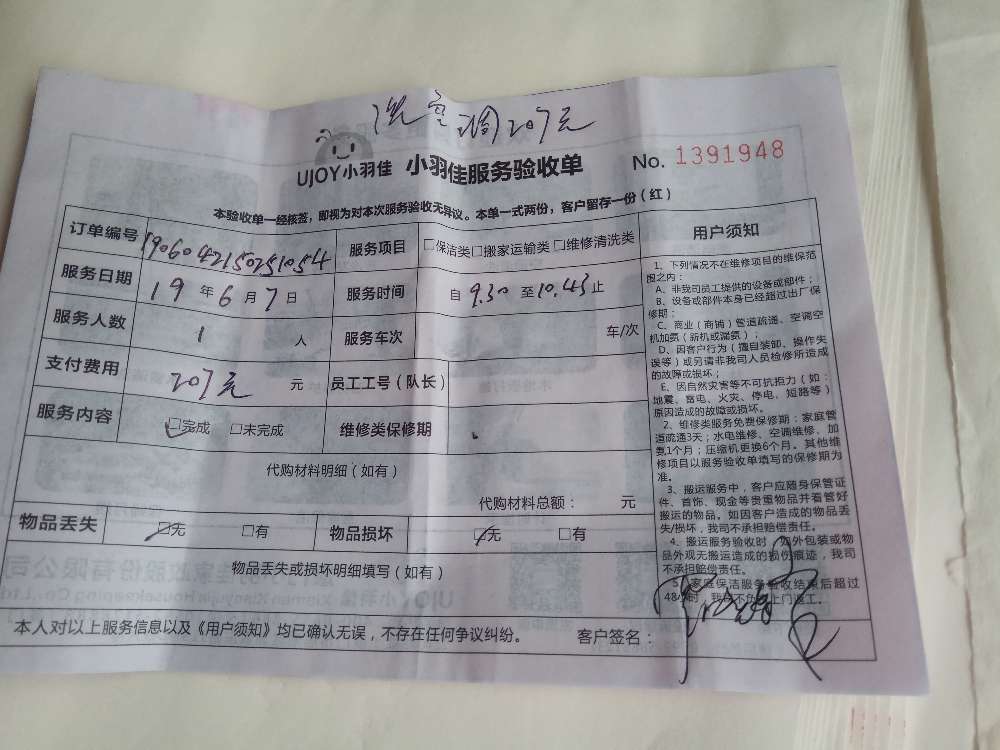 洗空调207元
UJOY小羽佳 小羽佳服务验收单 No. 1391948
本验收单一经核签，即视为对本次服务验收无异议。本单一式两份，客户留存一份（红）
订单编号 1906042150251054 服务项目 □保洁类□搬家运输类 □维修清洗类
服务日期 19年6月7日 服务时间 自9.30至10.43止
服务人数 1人 服务车次 车/次
支付费用 207元 元 员工工号（队长）
服务内容 □完成 □未完成 维修类保修期
代购材料明细（如有）
代购材料总额： 元
物品丢失 □无 □有 物品损坏 □无 □有
物品丢失或损坏明细填写（如有）
本人对以上服务信息以及《用户须知》均已确认无误，不存在任何争议纠纷。 客户签名：
用户须知
1、下列情况不在维修项目的维保范
围之内：
A、非我司员工提供的设备或部件；
B、设备或部件本身已经超过出厂保
修期；
C、商业（商铺）管道疏通、空调空
机加氨（新机或漏氨）；
D、因客户行为（擅自装卸、操作失
误等）或另请非我司人员检修所造成
的故障或损坏；
E、因自然灾害等不可抗拒力（如：
地震、雷电、火灾、停电、短路等）
原因造成的故障或损坏。
2、维修类服务免费保修期：家庭管
道疏通3天；水电维修、空调维修、加
氨1个月；压缩机更换6个月。其他维
修项目以服务验收单填写的保修期为
准。
3、搬运服务中，客户应随身保管证
件、首饰、现金等贵重物品并看管好
搬运的物品。如因客户造成的物品丢
失/损坏，我司不承担赔偿责任。
4、搬运服务验收时，如外包装或物
品外观无搬运造成的损伤痕迹，我司
不承担赔偿责任。
5、家庭保洁服务验收结束后超过
48小时，我司不负责上门返工。